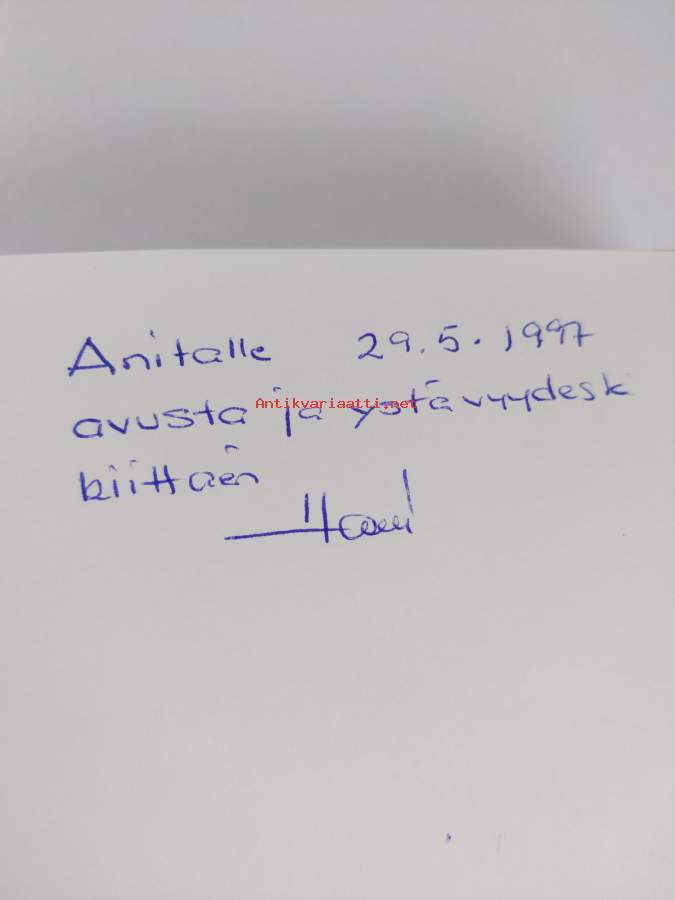 Anitalle 29.5.1997
avusta ja ystävyydesk
Antikvariaatti.net
kiittäen